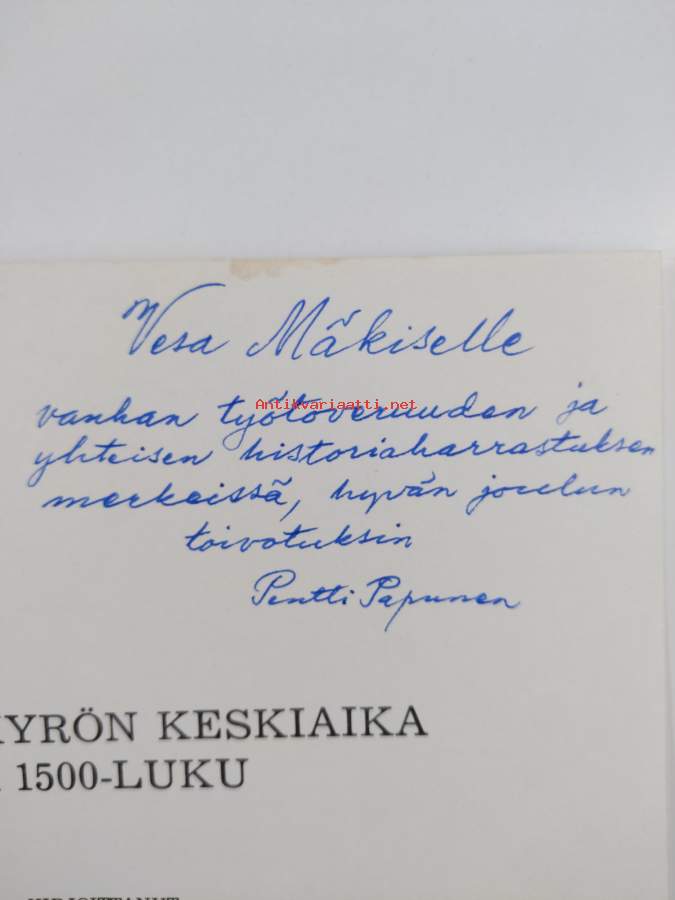 Vesa Mäkiselle
Antikvariaatti.net
vanhan työtoveruuden ja
yhteisen historiaharrastuksen
merkeissä, hyvän joulun
toivotuksin
Pentti Papunen
KYRÖN KESKIAIKA
1500-LUKU
KIRJOITTANUT